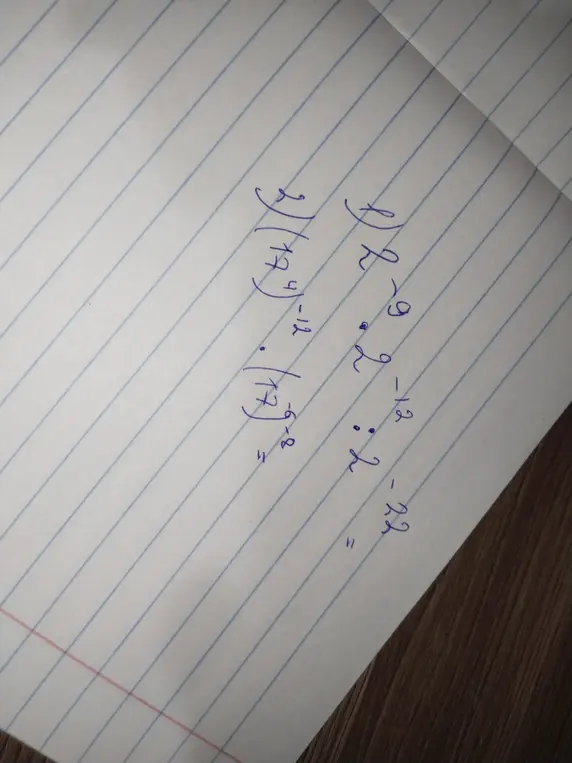 1) 2⁻⁹ · 2⁻¹² : 2⁻²² =
2) (17⁴)⁻¹² · (17⁻⁶)⁻⁸ =